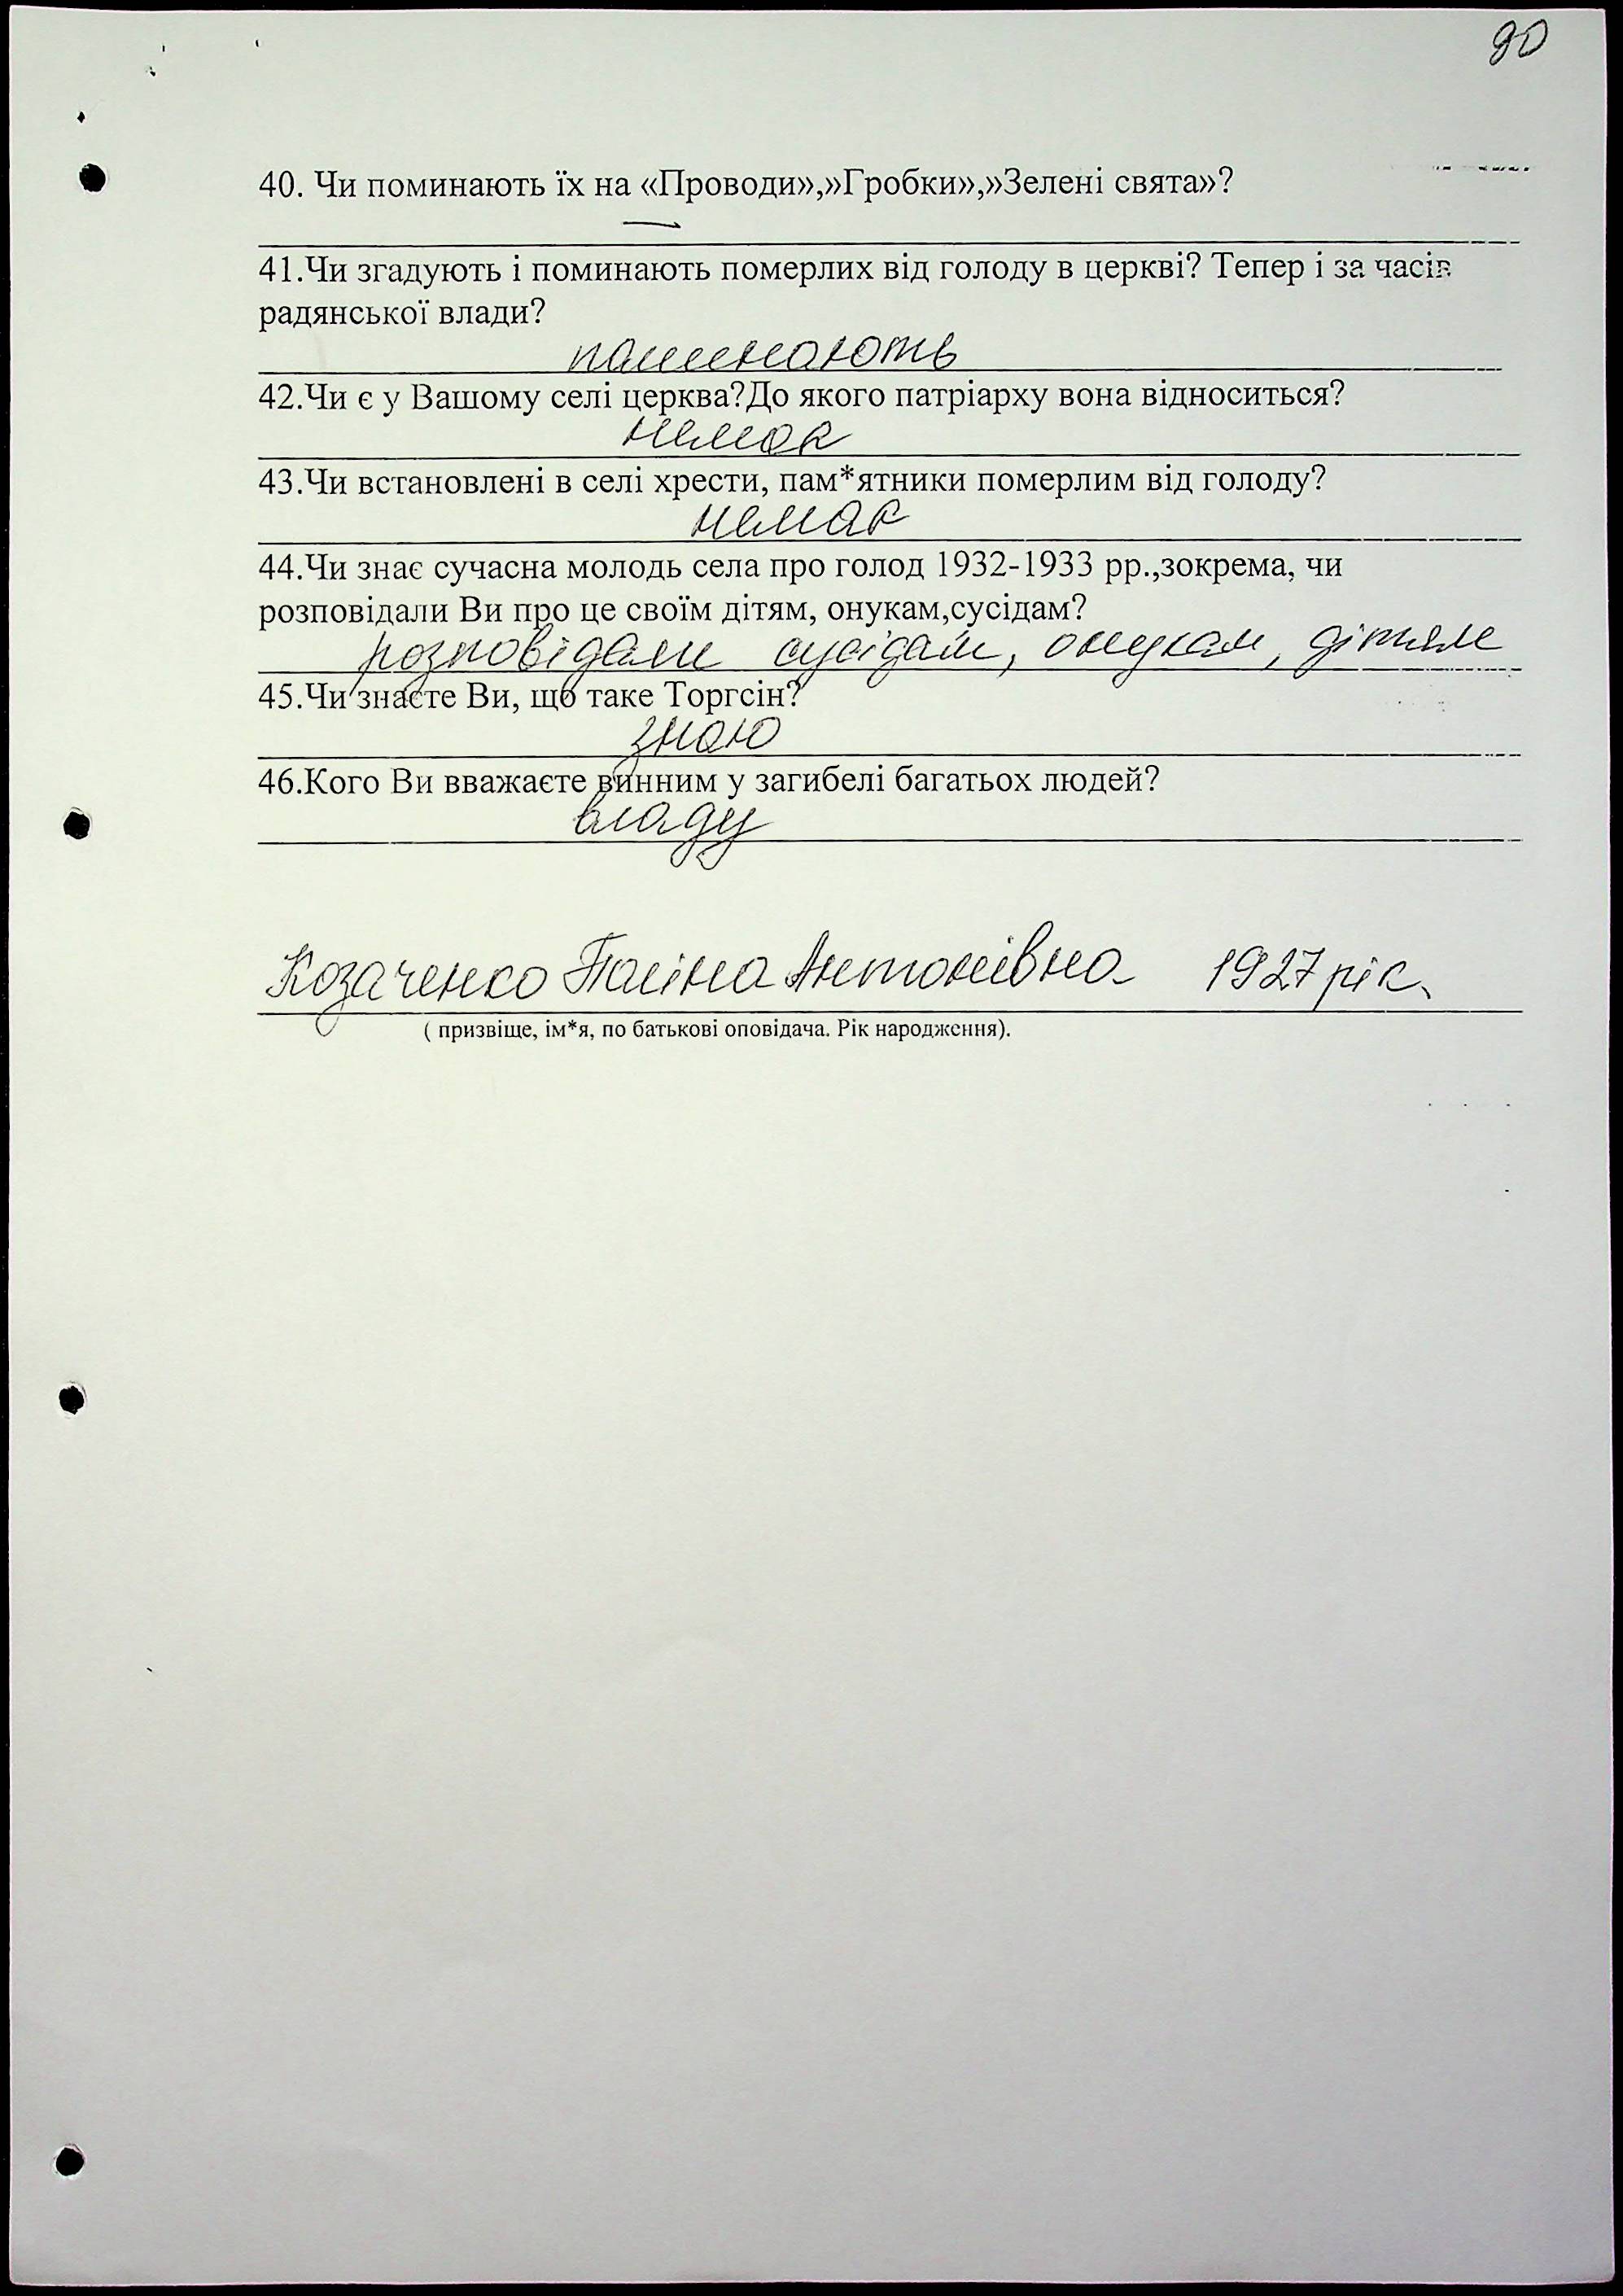 90
40. Чи поминають їх на «Проводи»,»Гробки»,»Зелені свята»?
—
41.Чи згадують і поминають померлих від голоду в церкві? Тепер і за часів
радянської влади?
поминають
42.Чи є у Вашому селі церква?До якого патріарху вона відноситься?
немає
43.Чи встановлені в селі хрести, пам*ятники померлим від голоду?
немає
44.Чи знає сучасна молодь села про голод 1932-1933 рр.,зокрема, чи
розповідали Ви про це своїм дітям, онукам,сусідам?
розповідали сусідам, онукам, дітям
45.Чи знаєте Ви, що таке Торгсін?
знаю
46.Кого Ви вважаєте винним у загибелі багатьох людей?
владу
Козаченко Поліна Антонівна 1927 рік.
( призвіще, ім*я, по батькові оповідача. Рік народження).